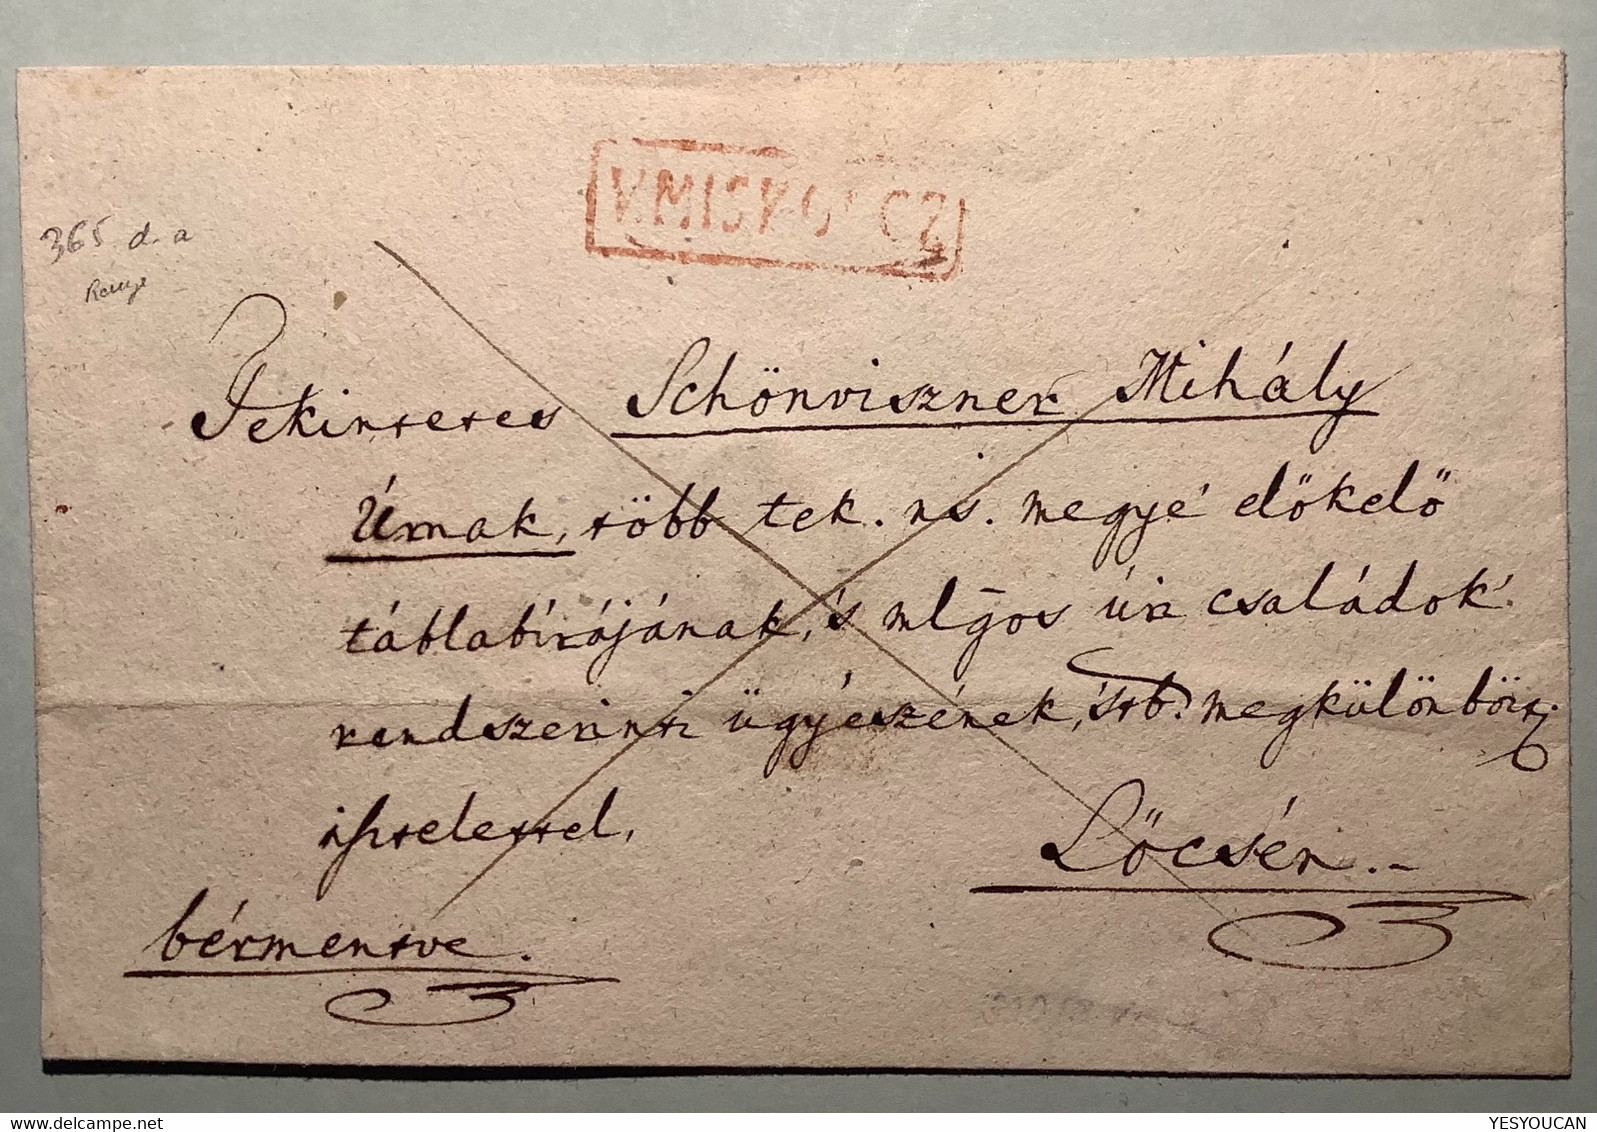 V. MISKOLCZ
365 d. a
Rouge
Tekintetes Schönviszner Mihály
Úrnak, több tek. ns. megyé előkelő
táblabírájának, 's mlgos úri családok'
rendszerinti ügyészének, 'stb. megkülönbözt.
tisztelettel,
Lőcsén.-
bérmentve.
www.delcampe.net
YESYOUCAN